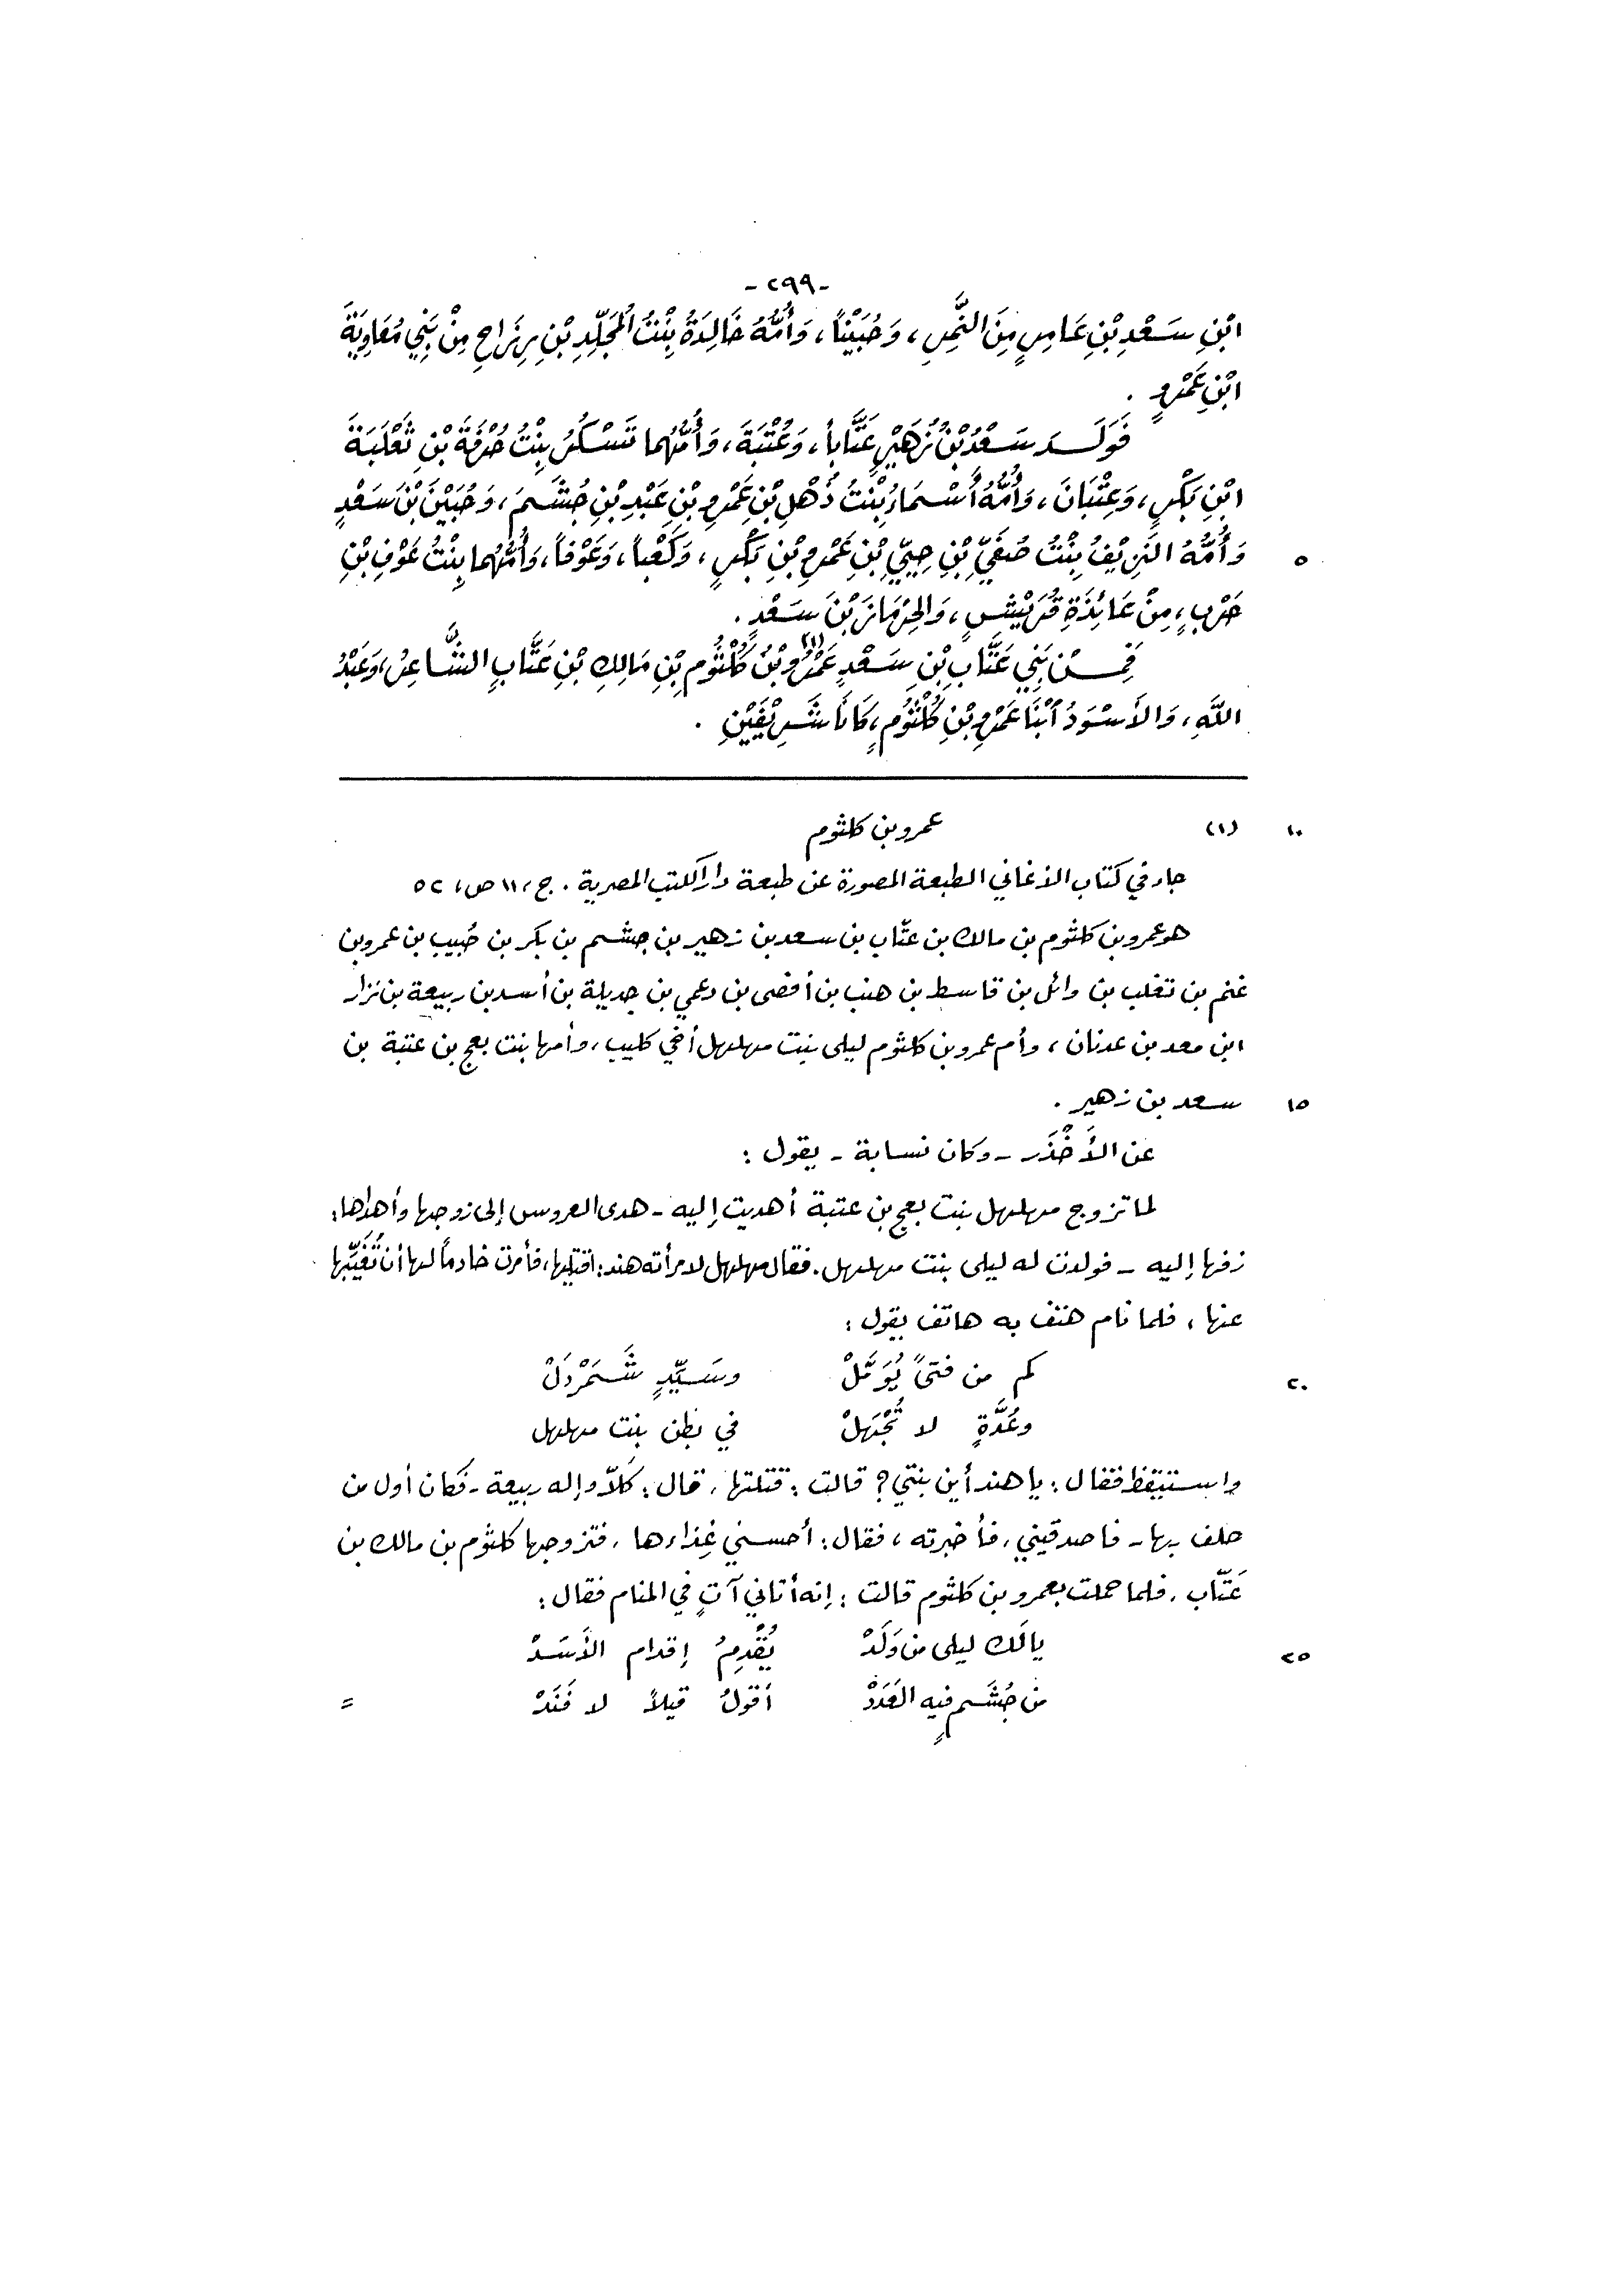 - ٢٩٩ -
ابْنِ سَعْدِ بْنِ عَامِرٍ مِنَ النَّمِرِ ، وَحُبَيْناً ، وَأُمُّهُ خَالِدَةُ بِنْتُ المُجَلِّدِ بْنِ رِزَاحٍ مِنْ بَنِي مُعَاوِيَةَ
ابْنِ عَمْرٍو .
فَوَلَدَ سَعْدُ بْنُ زُهَيْرٍ عَتَّاباً ، وَعُتْبَةَ ، وَأُمُّهُما تَسْكُرُ بِنْتُ حُرْفَةَ بْنِ ثَعْلَبَةَ
ابْنِ بَكْرٍ ، وَعِتْبَانَ ، وَأُمُّهُ أَسْمَاءُ بِنْتُ ذُهْلِ بْنِ عَمْرِو بْنِ عَبْدِ بْنِ جُشَمَ ، وَحُبَيْنَ بْنَ سَعْدٍ
٥ وَأُمُّهُ النَّزِيْفُ بِنْتُ صُفَيِّ بْنِ حِيَيِّ بْنِ عَمْرِو بْنِ بَكْرٍ ، وَكَعْباً ، وَعَوْفاً ، وَأُمُّهُما بِنْتُ عَوْفِ بْنِ
حَرْبٍ ، مِنْ عَائِذَةِ قُرَيْشٍ ، وَالحِرْمَازَ بْنَ سَعْدٍ .
فَمِنْ بَنِي عَتَّابِ بْنِ سَعْدٍ عَمْرُو(١) بْنُ كُلْثُومِ بْنِ مَالِكِ بْنِ عَتَّابٍ الشَّاعِرُ ، وَعَبْدُ
اللَّهِ ، وَالأَسْوَدُ ابْنَا عَمْرِو بْنِ كُلْثُومٍ ، كَانَا شَرِيْفَيْنِ .
١٠ (١) عمرو بن كلثوم
جاء في كتاب الأغاني الطبعة المصورة عن طبعة دار الكتب المصرية . ج ، ١١ ص ، ٥٢
هو عمرو بن كلثوم بن مالك بن عتّاب بن سعد بن زهير بن جشم بن بكر بن حُبيب بن عمرو بن
غنم بن تغلب بن وائل بن قاسط بن هنب بن أفصى بن دعمي بن جديلة بن أسد بن ربيعة بن نزار
ابن معد بن عدنان ، وأم عمرو بن كلثوم ليلى بنت مهلهل أخي كليب ، وأمها بنت بعج بن عتبة بن
١٥ سعد بن زهير .
عن الأَخْذَر - وكان نسابة - يقول :
لما تزوج مهلهل بنت بعج بن عتبة أهديت إليه - هدى العروس إلى زوجها وأهداها :
زفها إليه - فولدت له ليلى بنت مهلهل . فقال مهلهل لامرأته هند : اقتليها ، فأمرت خادماً لها أن تُغَيِّبها
عنها ، فلما نام هتف به هاتف يقول :
٢٠ كم من فتىً يُؤَمَّلْ وسَيِّدٍ شَمَرْدَلْ
وعُدَّةٍ لا تُجْهَلْ في بطن بنت مهلهل
واستيقظ فقال : يا هند أين بنتي ؟ قالت : قتلتها ، قال : كلاّ وإله ربيعة - فكان أول من
حلف بها - فاصدقيني ، فأخبرته ، فقال : أحسني غِذاءها ، فتزوجها كلثوم بن مالك بن
عَتّاب . فلما حملت بعمرو بن كلثوم قالت : إنه أتاني آتٍ في المنام فقال :
٢٥ يا لَك ليلى من وَلَدْ يُقْدِمُ إقدام الأَسَدْ
من جُشَمٍ فيه العَدَدْ أقولُ قيلاً لا فَنَدْ =